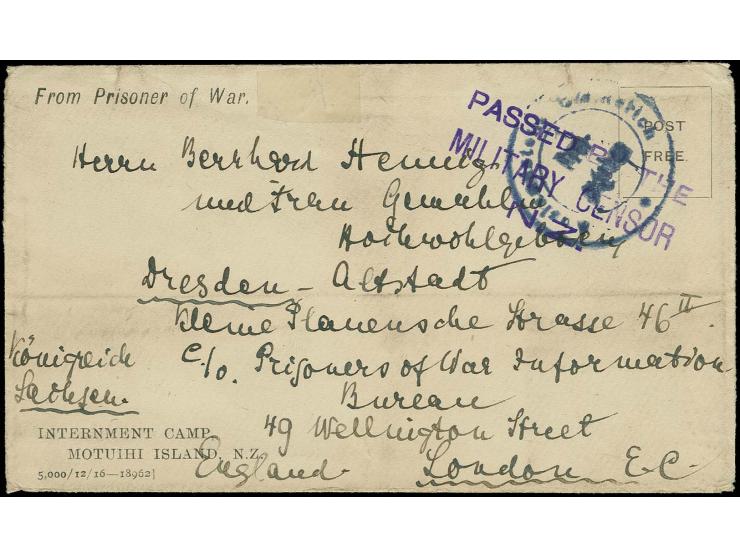 From Prisoner of War.
PASSED BY THE
MILITARY CENSOR
N.Z.
POST
FREE.
Herrn Bernhard Hennig
und Frau Gemahlin
Hochwohlgeboren
Dresden - Altstadt
Kleine Plauensche Strasse 46 II
Königreich
Sachsen.
c/o. Prisoners of War Information
Bureau
49 Wellington Street
England. London E.C.
INTERNMENT CAMP,
MOTUIHI ISLAND, N.Z.
5,000/12/16—18962]